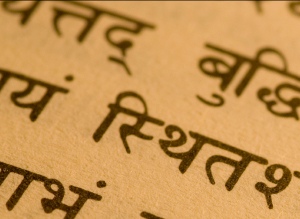 यत्तद् बुद्धि
यं स्थितश्
ाभं